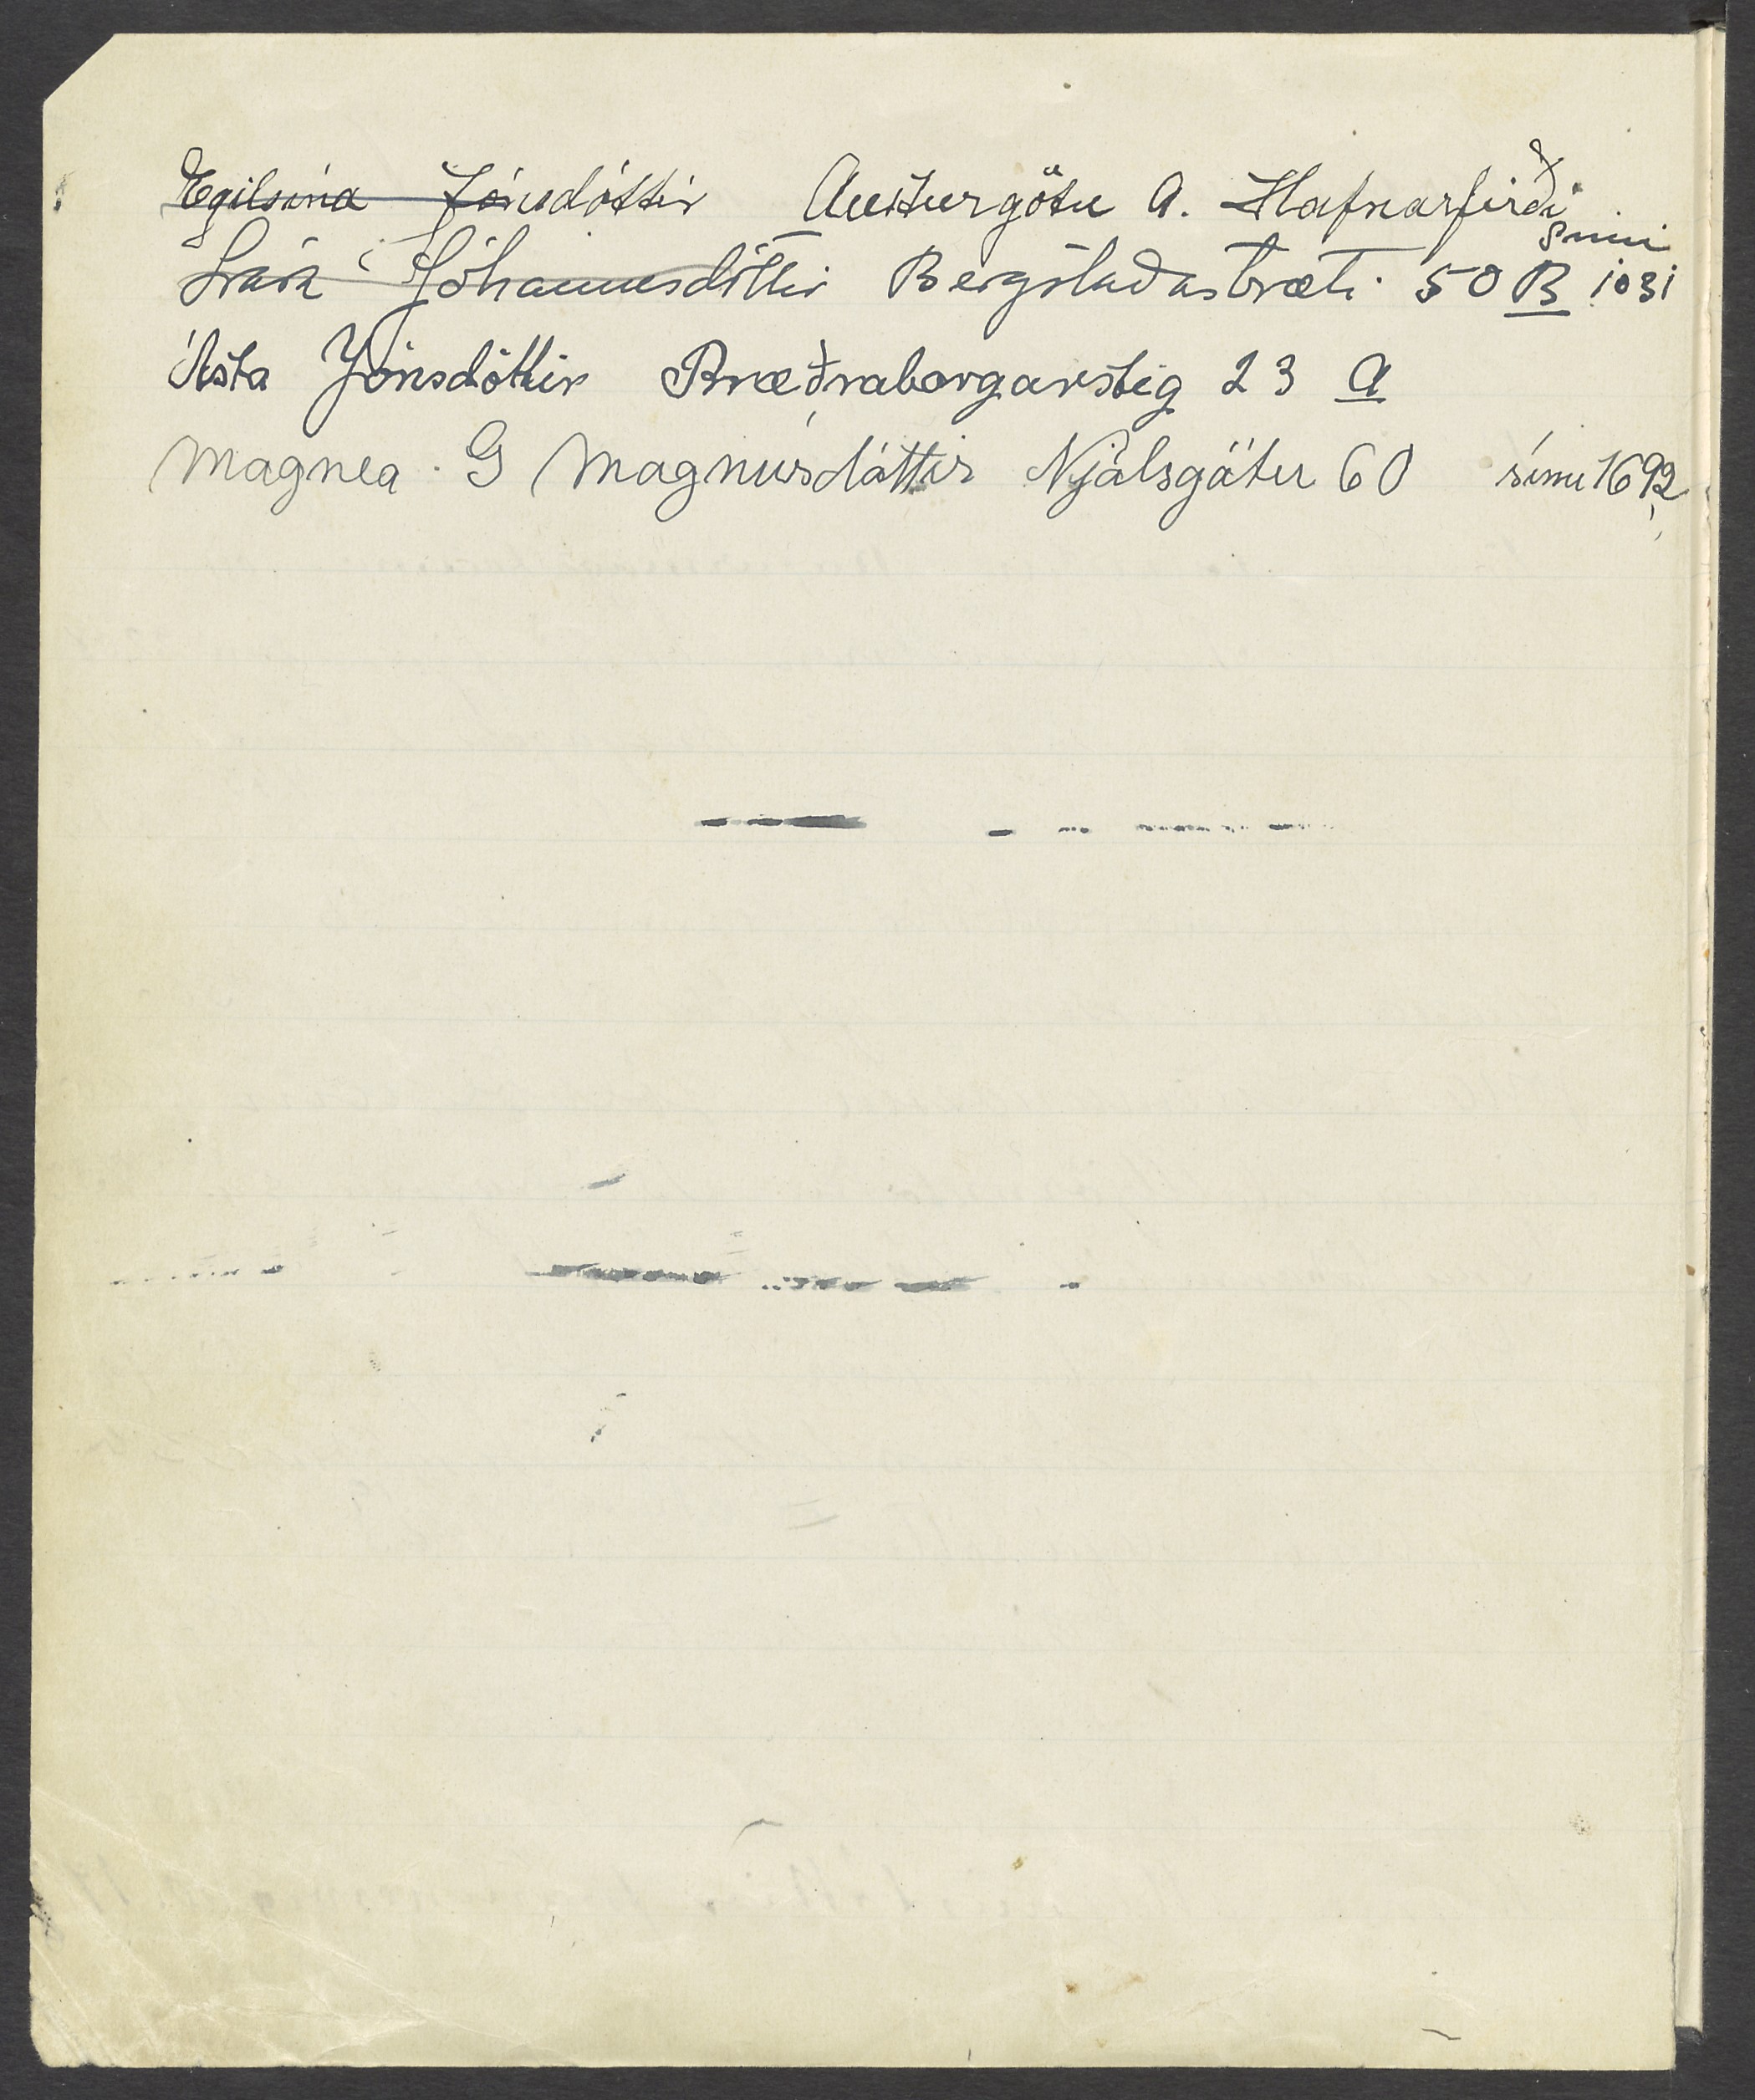 Egilsína Jónsdóttir Austurgötu A. Hafnarfirði
Lára Jóhannesdóttir Bergstaðastræti 50 B sími 1031
Ásta Jónsdóttir Bræðraborgarstig 23 A
Magnea G Magnúsdóttir Njálsgötu 60 sími 1692